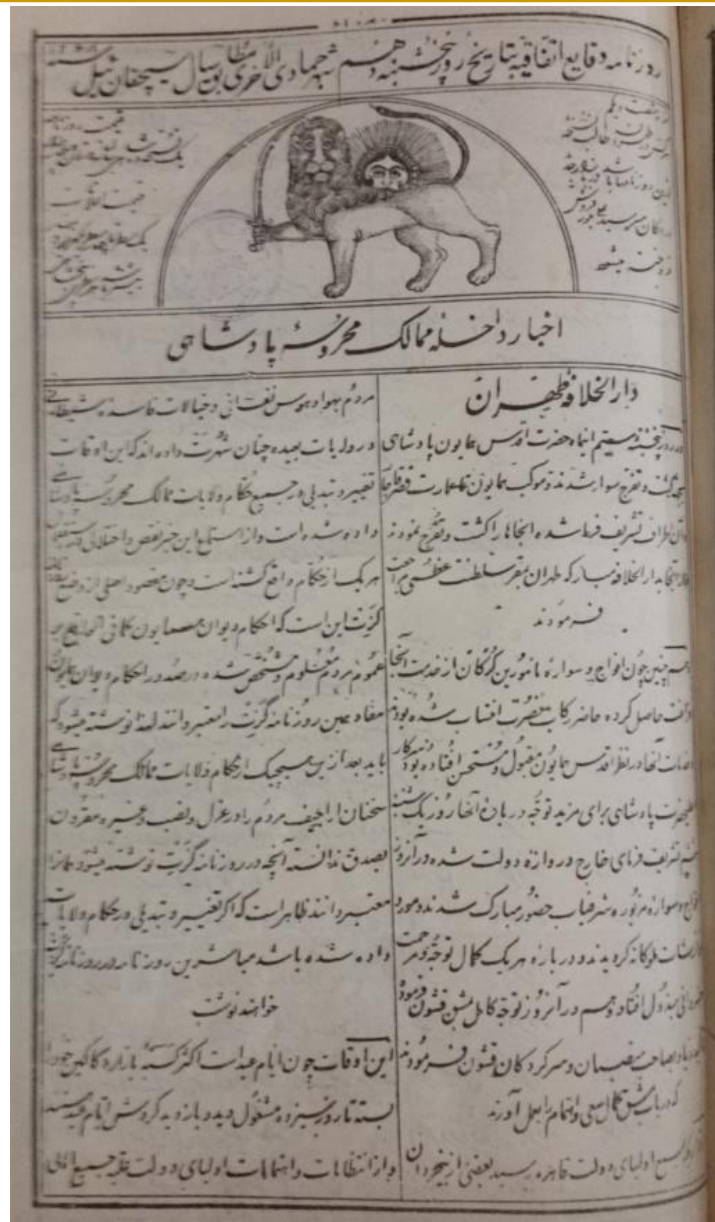 روزنامه وقایع اتفاقیه بتاریخ روز پنجشنبه دهم شهر جمادی الاخری مطابق سال سیچقان ئیل سنه ۱۲۶۸
نمره شصت و یکم
هرکس در طهران طالب
این روزنامها باشد در
دکان میرسید
فروخته میشود
قیمت روزنامه
یک نسخه
قیمت اعلانات
یک سطر الی چهار سطر
بیشتر باشد هر سطری
اخبار داخله ممالک محروسه پادشاهی
دارالخلافه طهران
در روز پنجشنبه سیتم اینماه حضرت اقدس همایون پادشاهی
بجهة گشت و تفرج سوار شدند و موکب همایون بعمارت قصر قاجار
و آن اطراف تشریف فرما شده آنجاها را گشت و تفرج نمودند
و از آنجا بدارالخلافه مبارکه طهران بمقر سلطنت عظمی مراجعت
فرمودند
همچنین چون افواج و سواره مامورین گرگان از خدمت آنجا
فراغت حاصل کرده حاضر رکاب نصرت انتساب شده بودند
و خدمات آنها در نظر اقدس همایون مقبول و مستحسن افتاده بود سرکار
اعلیحضرت پادشاهی برای مزید توجه درباره آنها روز یکشنبه
تشریف فرمای خارج دروازه دولت شده در آنروز
افواج و سواره مزبوره شرفیاب حضور مبارک شدند و مورد
نوازشات ملوکانه گردیدند و درباره هر یک کمال توجه و مرحمت
مبذول افتاد و هم در آنروز توجه کامل بمشق قشون فرموده
بصاحب منصبان و سرکردگان قشون فرمودند
که در باب مشق کمال سعی و اهتمام را بعمل آورند
بسمع اولیای دولت قاهره رسید بعضی از بیخردان
مردم بهوا و هوس نفسانی و خیالات فاسده شیطانی
و روایات بعیده چنان شهرت داده اند که این اوقات
تغییر و تبدیلی در جمیع حکام ولایات ممالک محروسه پادشاهی
داده شده است و از استماع این خبر نقص و اختلالی در
هر یک از حکام واقع گشته است و چون مقصود اصلی از وضع
گزت این است که احکام دیوان همایون کما فی الواقع بر
عموم مردم معلوم و مشخص شده در صدور احکام دیوان همایون
مفاد همین روزنامه گزت را معتبر دانند لهذا نوشته میشود که
باید بعد از این هیچیک از حکام ولایات ممالک محروسه پادشاهی
سخنان اراجیف مردم را در عزل و نصب و غیره مقرون
بصدق ندانسته آنچه در روزنامه گزت نوشته میشود همانرا
معتبر دانند ظاهر است که اگر تغییر و تبدیلی در حکام ولایات
داده شده باشد مباشرین روزنامه در روزنامه گزت
خواهند نوشت
این اوقات چون ایام عید است اکثر کسبه بازار دکاکین خود را
بسته تا روز سیزده مشغول دید و بازدید گردش ایام عید هستند
و از انتظامات و اهتمامات اولیای دولت علیه جمیع اهالی